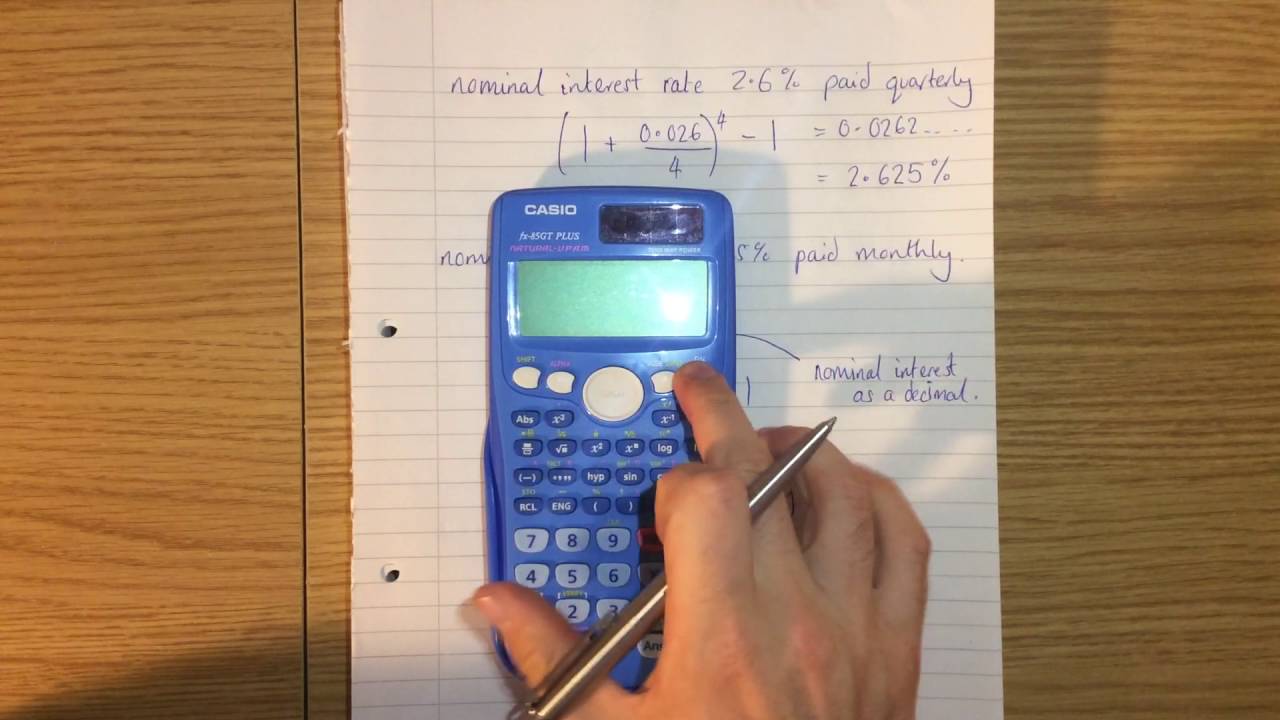 nominal interest rate 2.6% paid quarterly
(1 + 0.026/4)^4 - 1 = 0.0262.....
= 2.625%
CASIO
fx-85GT PLUS
NATURAL-V.P.A.M.
TWO WAY POWER
nom 5% paid monthly.
SHIFT ALPHA
nominal interest
as a decimal.
1
Abs x³ x⁻¹
√ x² log
(−) hyp sin
STO
RCL ENG ( )
7 8 9
4 5 6
2 3
Ans